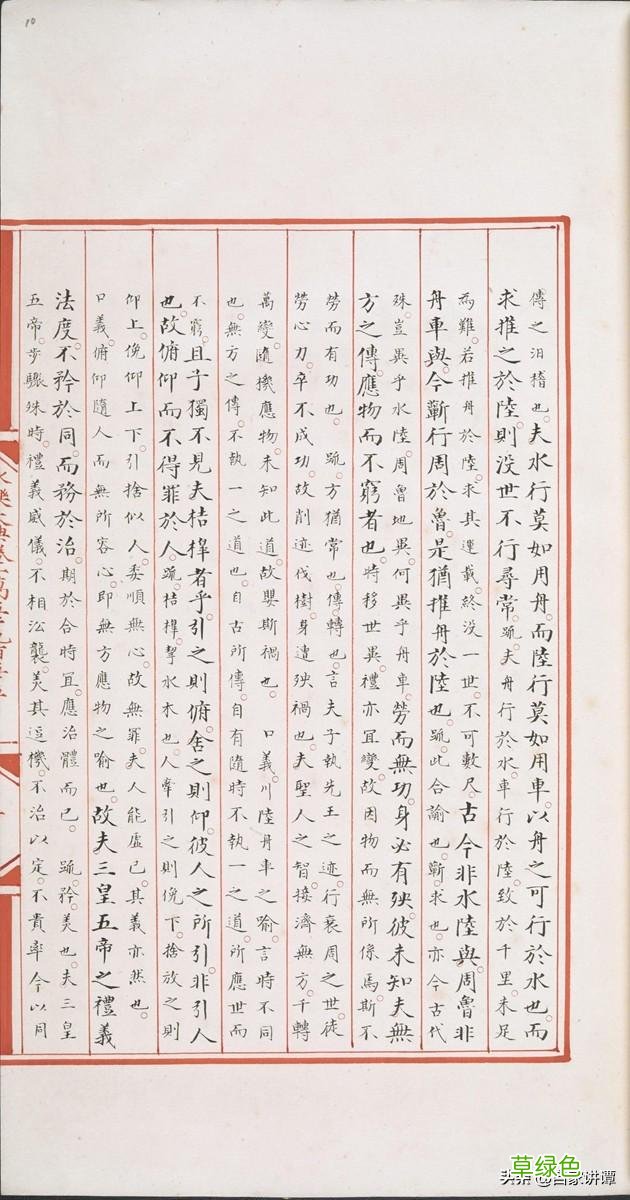 10
傳之汨稽也。夫水行莫如用舟。而陸行莫如用車。以舟之可行於水也。而
求推之於陸。則没世不行尋常。疏。夫舟行於水。車行於陸。致於千里。未足
為難。若推舟於陸。求其運載。終没一世。不可數尺。古今非水陸與。周魯非
舟車與。今蘄行周於魯。是猶推舟於陸也。疏。此合諭也。蘄。求也。亦今古代
殊。豈異乎水陸。周魯地異。何異乎舟車。勞而無功。身必有殃。彼未知夫無
方之傳。應物而不窮者也。時移世異。禮亦宜變。故因物而無所係焉。斯不
勞而有功也。疏。方猶常也。傳。轉也。言夫子執先王之迹。行衰周之世。徒
勞心力。卒不成功。故削迹伐樹。身遭殃禍也。夫聖人之智。接濟無方。千轉
萬變。隨機應物。未知此道。故嬰斯禍也。 口義。川陸舟車之喻。言時不同
也。無方之傳。不執一之道也。自古所傳。自有隨時不執一之道。所應世而
不窮。且子獨不見夫桔槔者乎。引之則俯。舍之則仰。彼人之所引。非引人
也。故俯仰而不得罪於人。疏。桔槔。挈水木也。人牽引之則俛下。捨放之則
仰上。俛仰上下。引捨似人。委順無心。故無罪。夫人能虛己。其義亦然也。
口義。俯仰隨人而無所容心。即無方應物之喻也。故夫三皇五帝之禮義
法度。不矜於同。而務於治。期於合時宜。應治體而已。 疏。矜。美也。夫三皇
五帝。步驟殊時。禮義威儀。不相沿襲。美其逗機。不治以定。不貴率今以同
草绿色